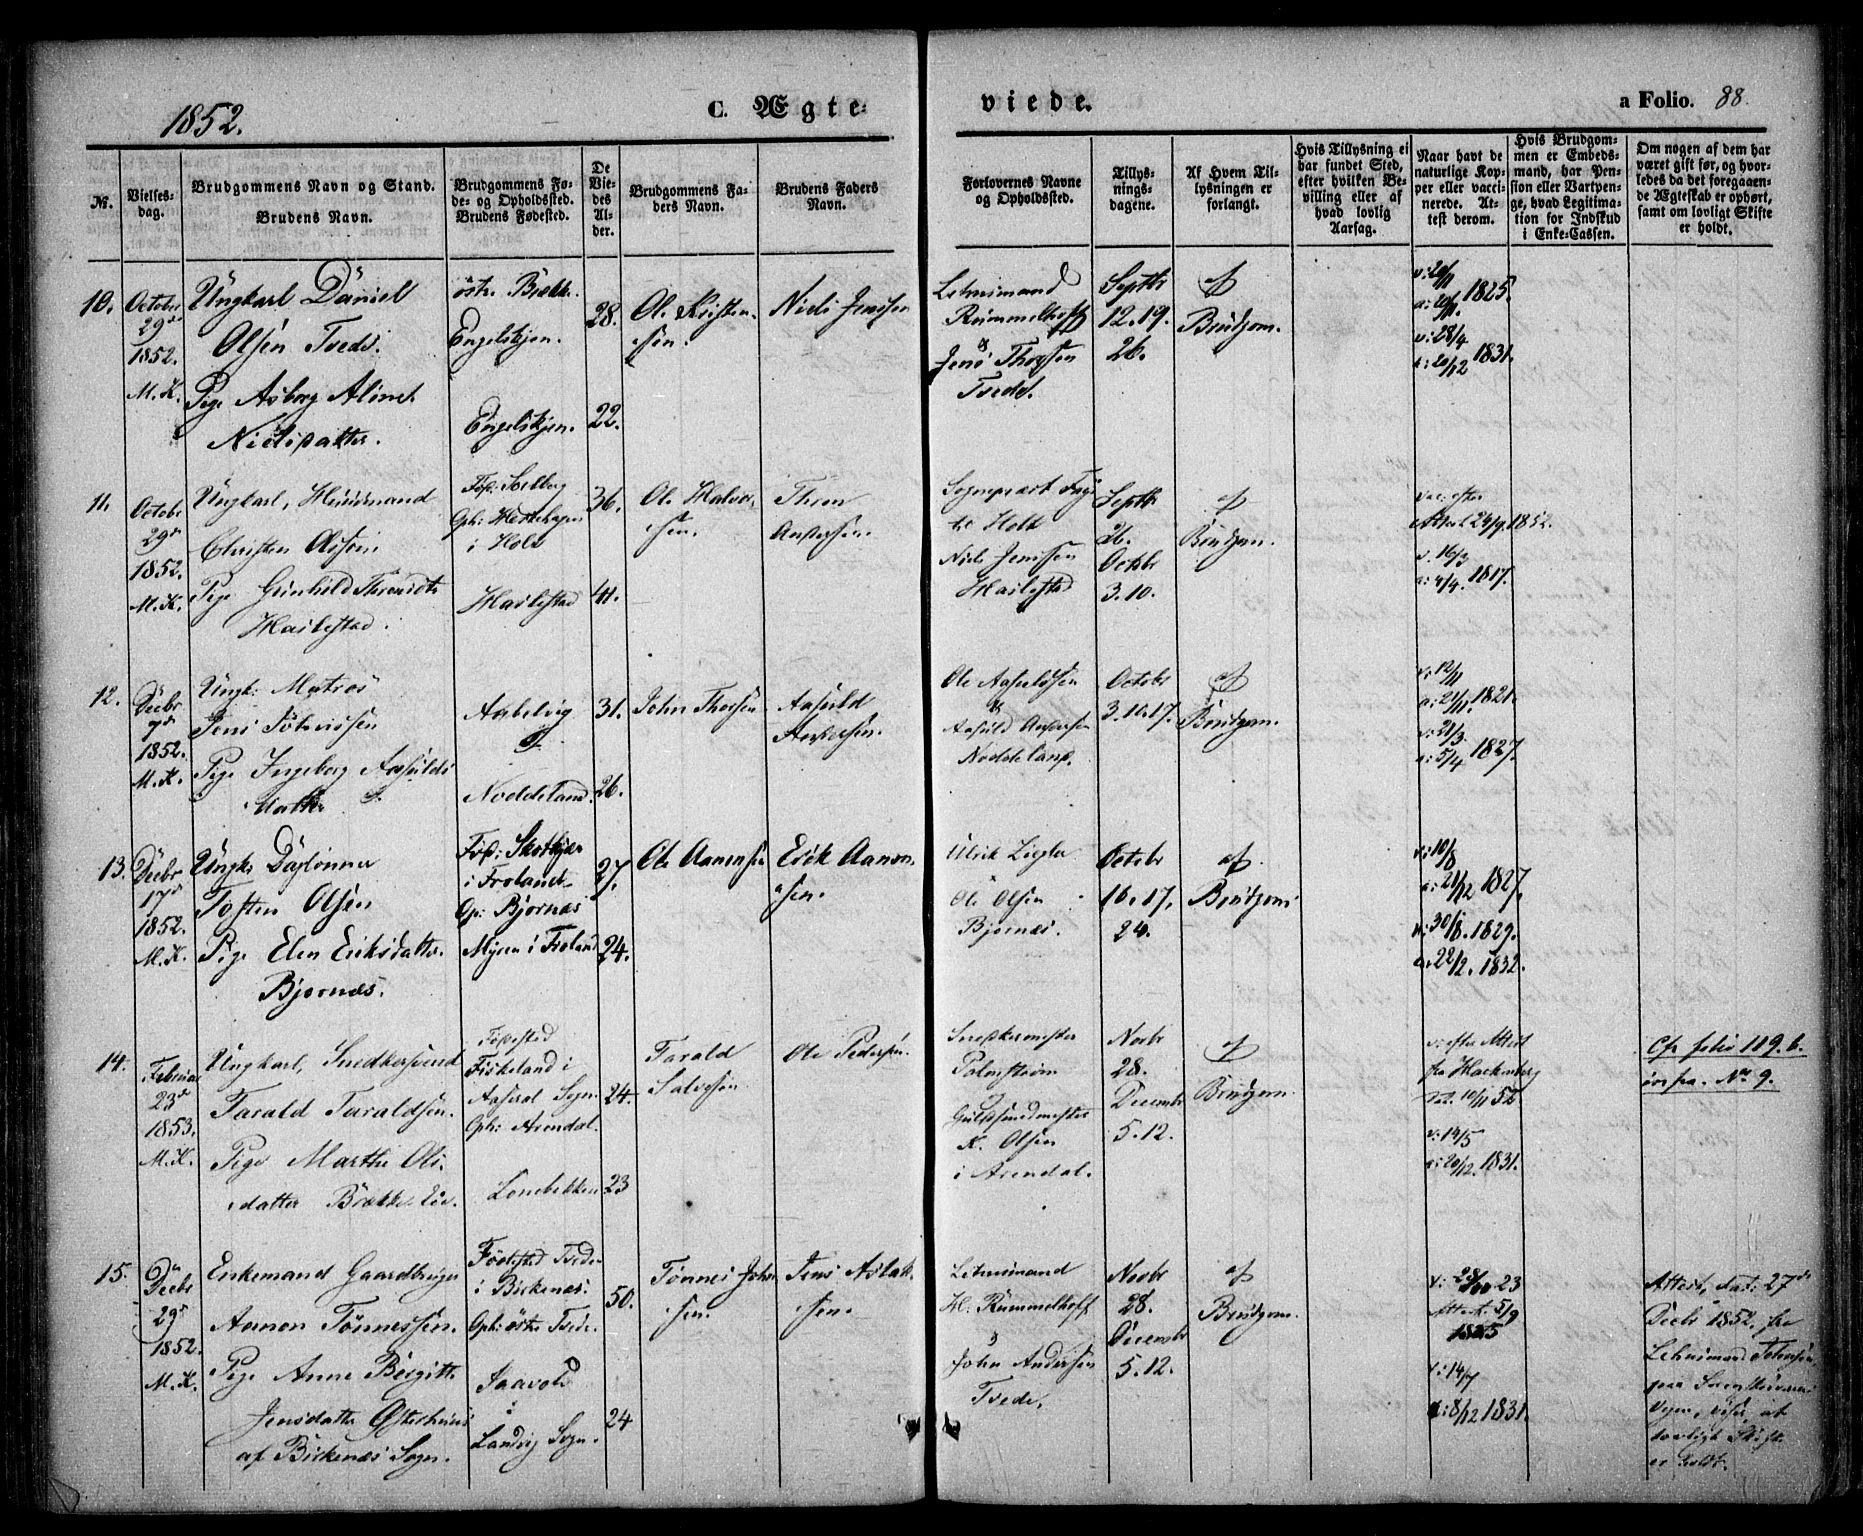 1852.
C. Ægte-
viede.
a Folio. 88.
No.
Vielses-
dag.
Brudgommens Navn og Stand.
Brudens Navn.
Brudgommens Fø-
de- og Opholdssted.
Brudens Fødested.
De
Vie-
des
Al-
der.
Brudgommens Fa-
ders Navn.
Brudens Faders
Navn.
Forlovernes Navne
og Opholdssted.
Tillys-
nings-
dagene.
Af Hvem Til-
lysningen er
forlangt.
Hvis Tillysning ei
har fundet Sted,
efter hvilken Be-
villing eller af
hvad lovlig
Aarsag.
Naar havt de
naturlige Kop-
per eller vacci-
nerede. At-
test derom.
Hvis Brudgom-
men er Embeds-
mand, har Pen-
sion eller Vartpen-
ge, hvad Legitima-
tion for Indskud
i Enke-Cassen.
Om nogen af dem har
været gift før, og hvor-
ledes da det foregaaen-
de Ægteskab er ophørt,
samt om lovligt Skifte
er holdt.
10.
October
29de
1852.
M. K.
Ungkarl Daniel
Olsen Tvede.
Pige Asborg Aline
Nielsdatter.
østre Brække
Engelskjøn.
Engelskjen.
28.
22.
Ole Kristen-
sen.
Niels Jenssen
Lehnsmand
Rummelhoff
&
Jens Thorsen
Tvede.
Septbr
12. 19.
26.
af
Brudgom.
v: 20/11
a: 20/11. 1825.
v: 28/4
a: 20/12 1831.
11.
Octobr
29de
1852.
M. K.
Ungkarl, Huusmand
Christen Olsen
Pige Gunhild
Hailestad.
Fød:
Oph: Hestehagen
i Holt
Hailestad
36.
41.
Ole Halvor-
sen.
Andersen.
til Holt
Niels Jenssen
Hailestad
Septbr
26.
Octobr
3. 10.
af
Brudgom.
vac: efter
Attest 24/9. 1852.
v. 16/3
a: 4/4. 1817.
12.
Decbr
7de
1852.
M. K.
Ungk: Matros
Jens
Pige Ingeborg Aasulds
datter
Aabelvig
Noddeland.
31.
26.
John Thorsen
Aasuld
Andersen.
Ole
&
Aasuld Andersen
Noddeland.
Octobr
3. 10. 17.
af
Brudgom.
v: 12/11
a: 21/11. 1821.
v: 21/3
a: 5/4 1827.
13.
Decbr
17de
1852.
M. K.
Ungk: Dagslønner
Tosten Olsen
Pige Elen Eriksdatter
Bjørnæs.
Fød:
i Froland
Op: Bjørnæs
Myren i Froland
27.
24.
Ole Aanensen
Erik Aanon-
sen.
Ulrik
Ole Olsen
Bjørnæs.
Octobr
16. 17.
24.
af
Brudgom
v: 10/8
a: 21/12 1827.
v: 30/8. 1829.
a: 22/2. 1832.
14.
Februar
23de
1853.
M. K.
Ungkarl, Snedkersvend
Tarald Taraldsen.
Pige Marthe Ols-
datter
Fødested
Fiskeland i
Aaserald Sogn.
Oph: Arendal.
Lonebekken
24.
23
Tarald
Salvesen
Ole Pedersen.
Snedkermester
Palmstrøm
&
Guldsmedmester
K. Olsen
i Arendal.
Novbr
28.
Decembr
5. 12.
af
Brudgom.
v: efter Attest
fra
10/11 52
v: 14/5
a: 20/12. 1831.
Cfr folio 109. b.
No 9.
15.
Decbr
29de
1852.
M. K.
Enkemand Gaardbruger
Aanon Tønnessen.
Pige Anne Birgitte
Jensdatter
af Birkenæs Sogn.
Fødested Tvede
i Birkenæs.
Oph: østre Tvede.
i
Landvig Sogn.
50.
24
Tønnes John-
sen.
Jens Aslak-
sen.
Lehnsmand
H. Rummelhoff
&
John Andersen
Tvede.
Novbr
28.
Decembr
5. 12.
af
Brudgom.
Attest. 5/9
v: 14/7
a: 8/12 1831.
Attest, dat: 27de
Decbr 1852. fra
Lehnsmand
paa
Vejen, viser, at
lovligt Skifte
er holdt.